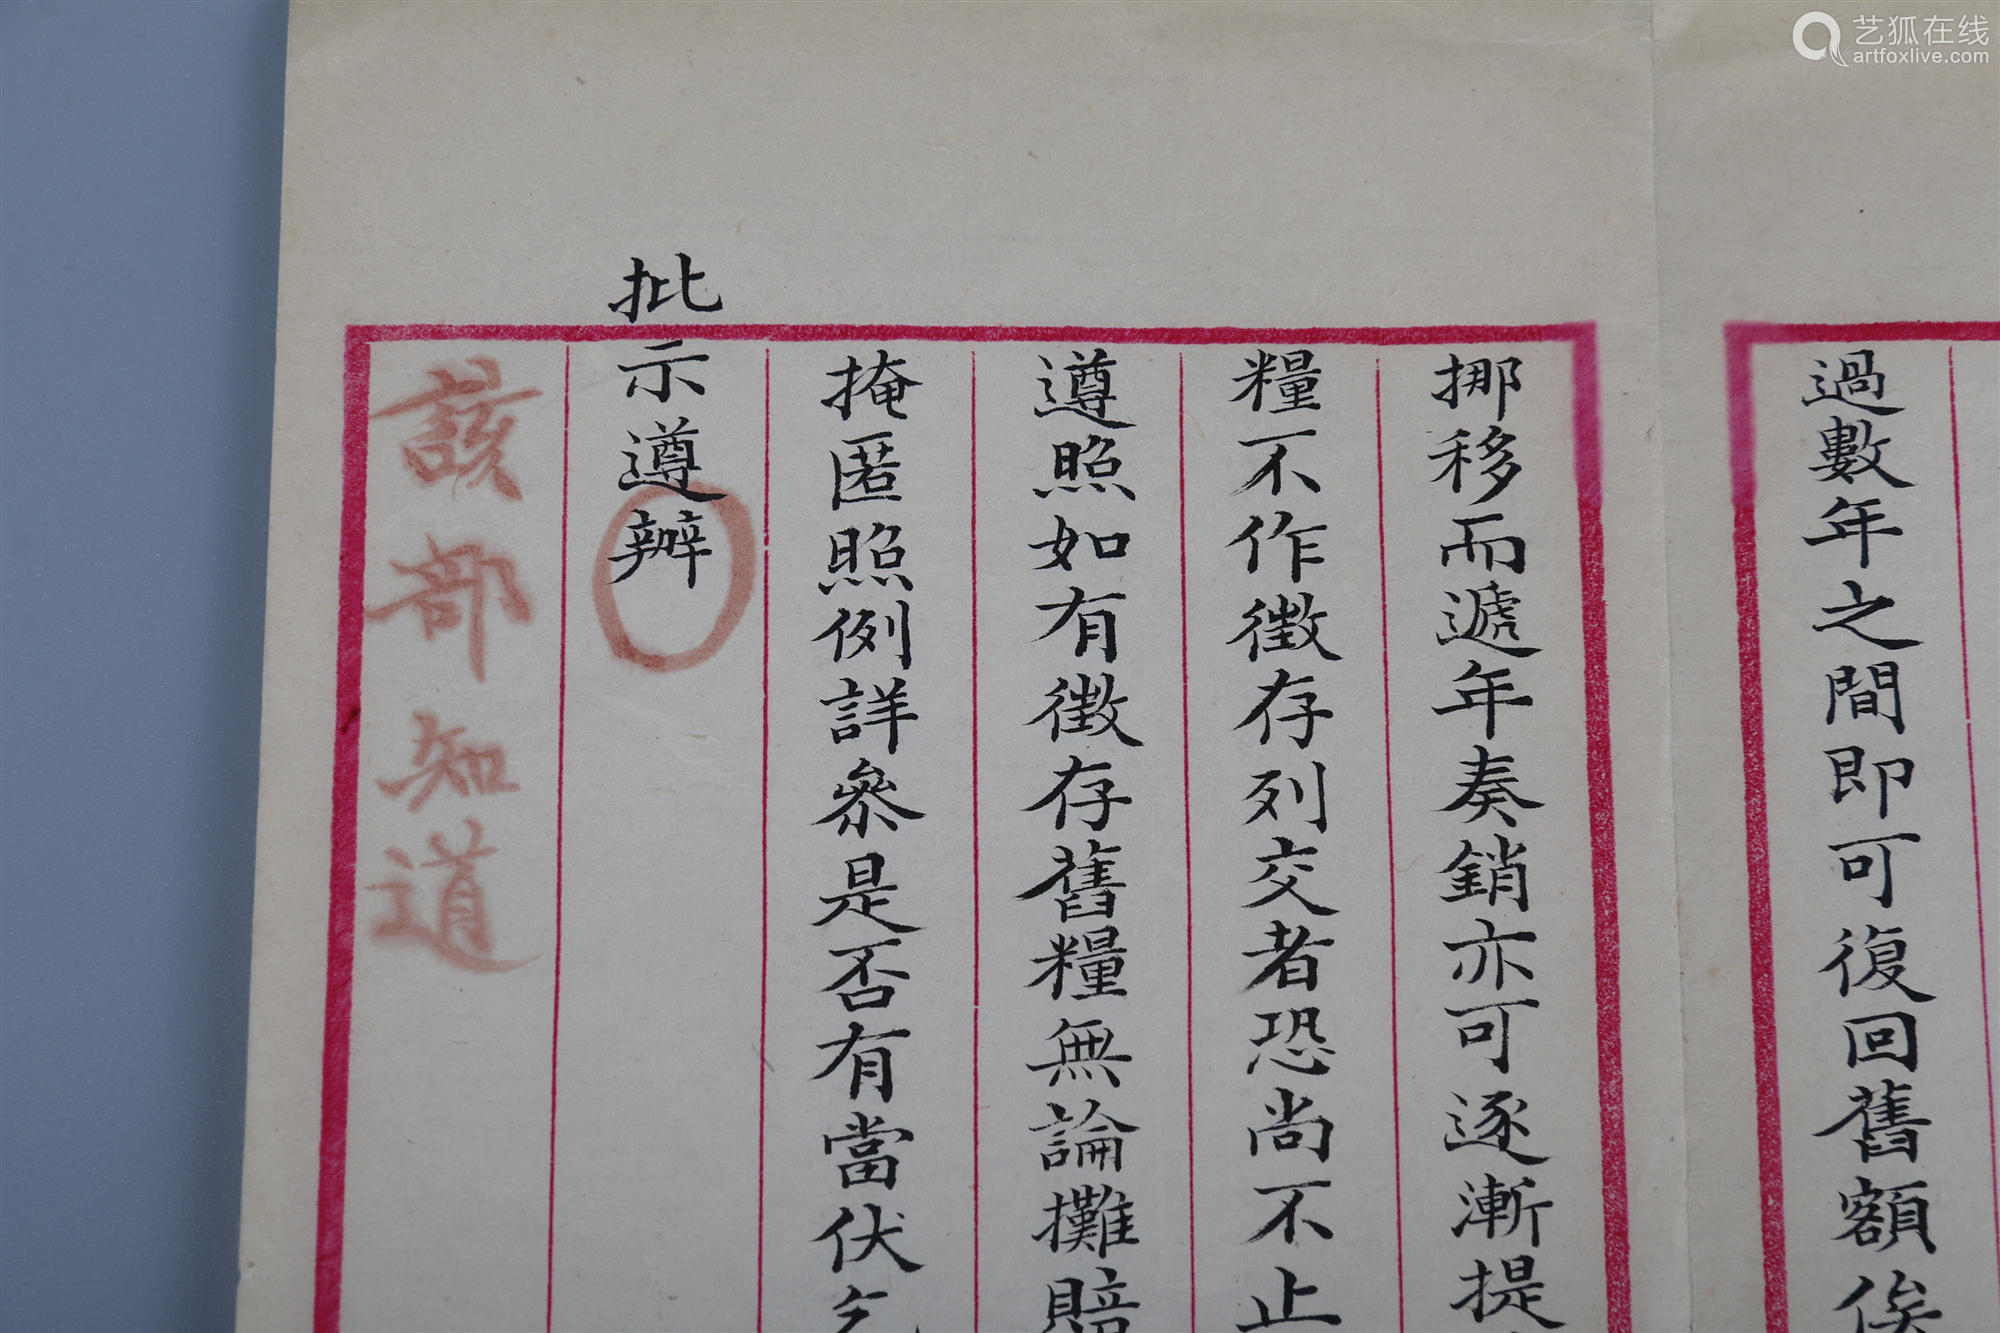 過數年之間即可復回舊額俟
挪移而遞年奏銷亦可逐漸提
糧不作徵存列交者恐尚不止
遵照如有徵存舊糧無論攤賠
掩匿照例詳參是否有當伏乞
批示遵辦
該部知道
艺狐在线
artfoxlive.com